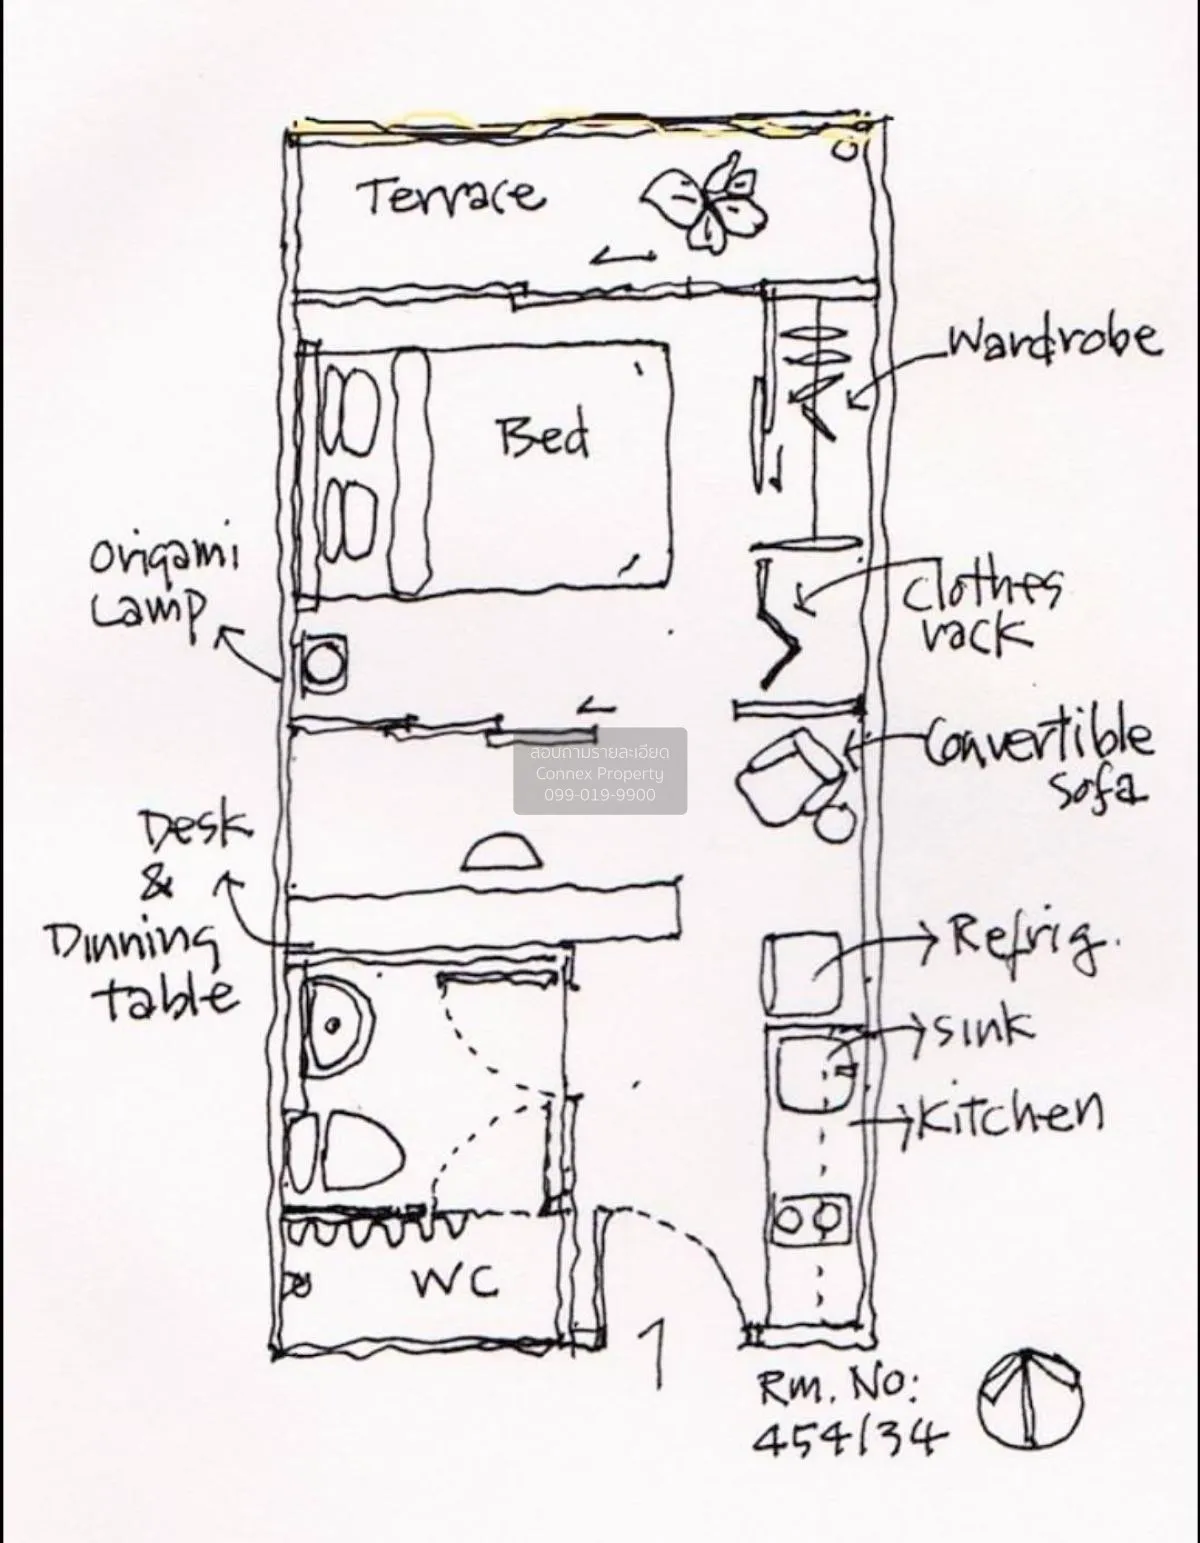 Terrace
Wardrobe
Bed
Origami
Lamp
Clothes
rack
Convertible
sofa
สอบถามรายละเอียด
Connex Property
099-019-9900
Desk
&
Dinning
table
Refrig.
sink
Kitchen
WC
Rm. No:
454/34